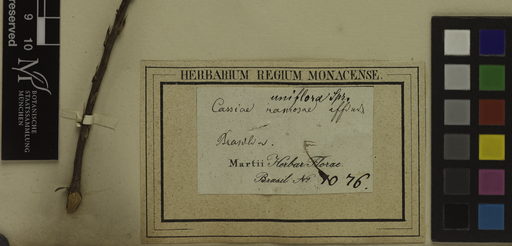 reserved
9 10
BOTANISCHE
STAATSSAMMLUNG
MÜNCHEN
HERBARIUM REGIUM MONACENSE.
uniflora Spr.
Cassiae ramosae affinis
Brasilia.
Martii Herbar. Florae
Brasil No. 1076.